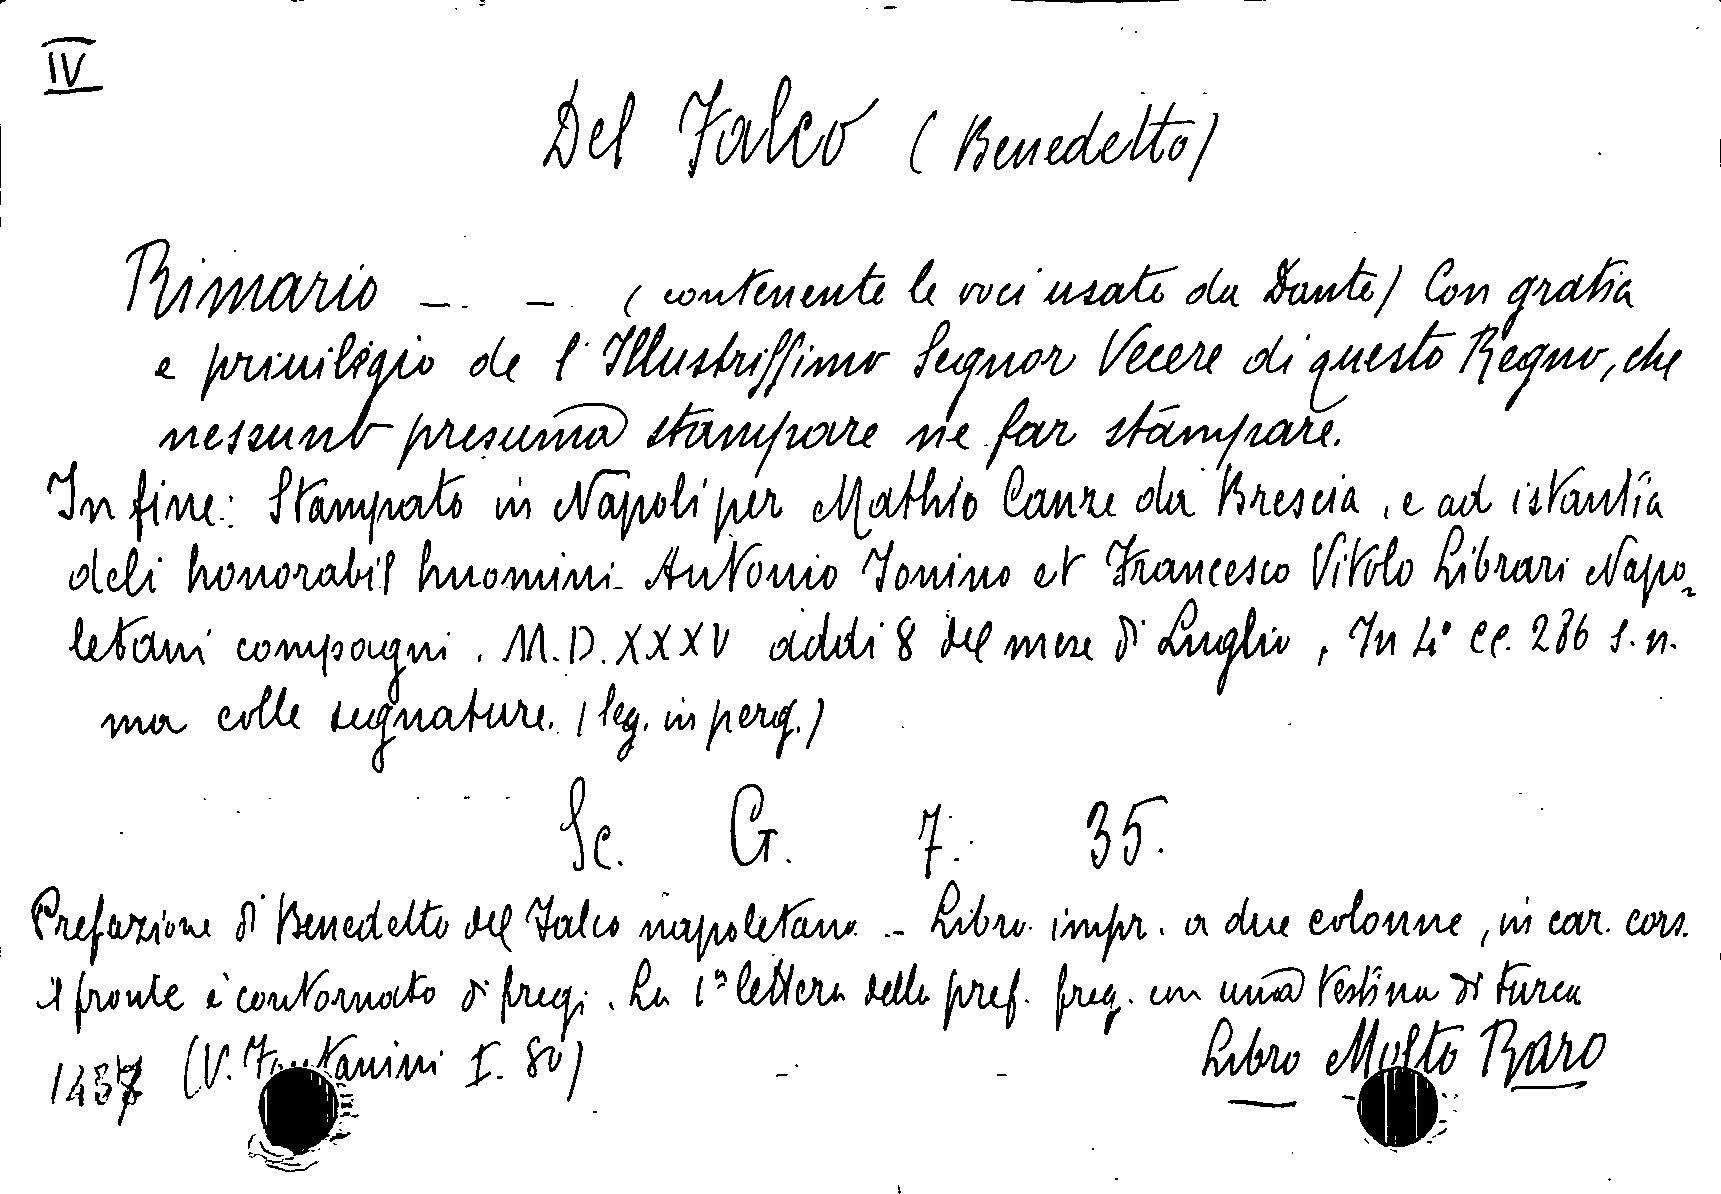 IV
Del Falco (Benedetto)
Rimario – . – (contenente le voci usate da Dante) Con gratia
e privilegio de l'Illustrissimo Segnor Vecere di questo Regno, che
nessuno presuma stampare ne far stampare.
In fine: Stampato in Napoli per Mathio Canze da Brescia, e ad istantia
deli honorabil huomini Antonio Jonino et Francesco Vitolo Librari Napo=
letani compagni. M.D.XXXV addi 8 del mese di Luglio, In 4° cc. 286 s.n.
ma colle segnature. (leg. in perg.)
Sc. G. 7. 35.
Prefazione di Benedetto del Falco napoletano – Libro impr. a due colonne, in car. cors.
il fronte è contornato di fregi. La 1ª lettera della pref. freg. con una testina di turca
(V. Fontanini I. 80) Libro Molto Raro